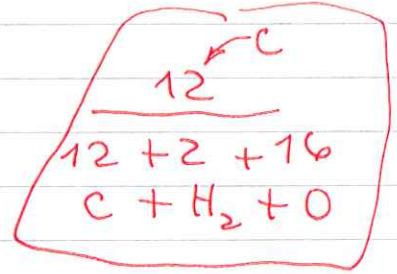 C
12
12 + 2 + 16
C + H₂ + O